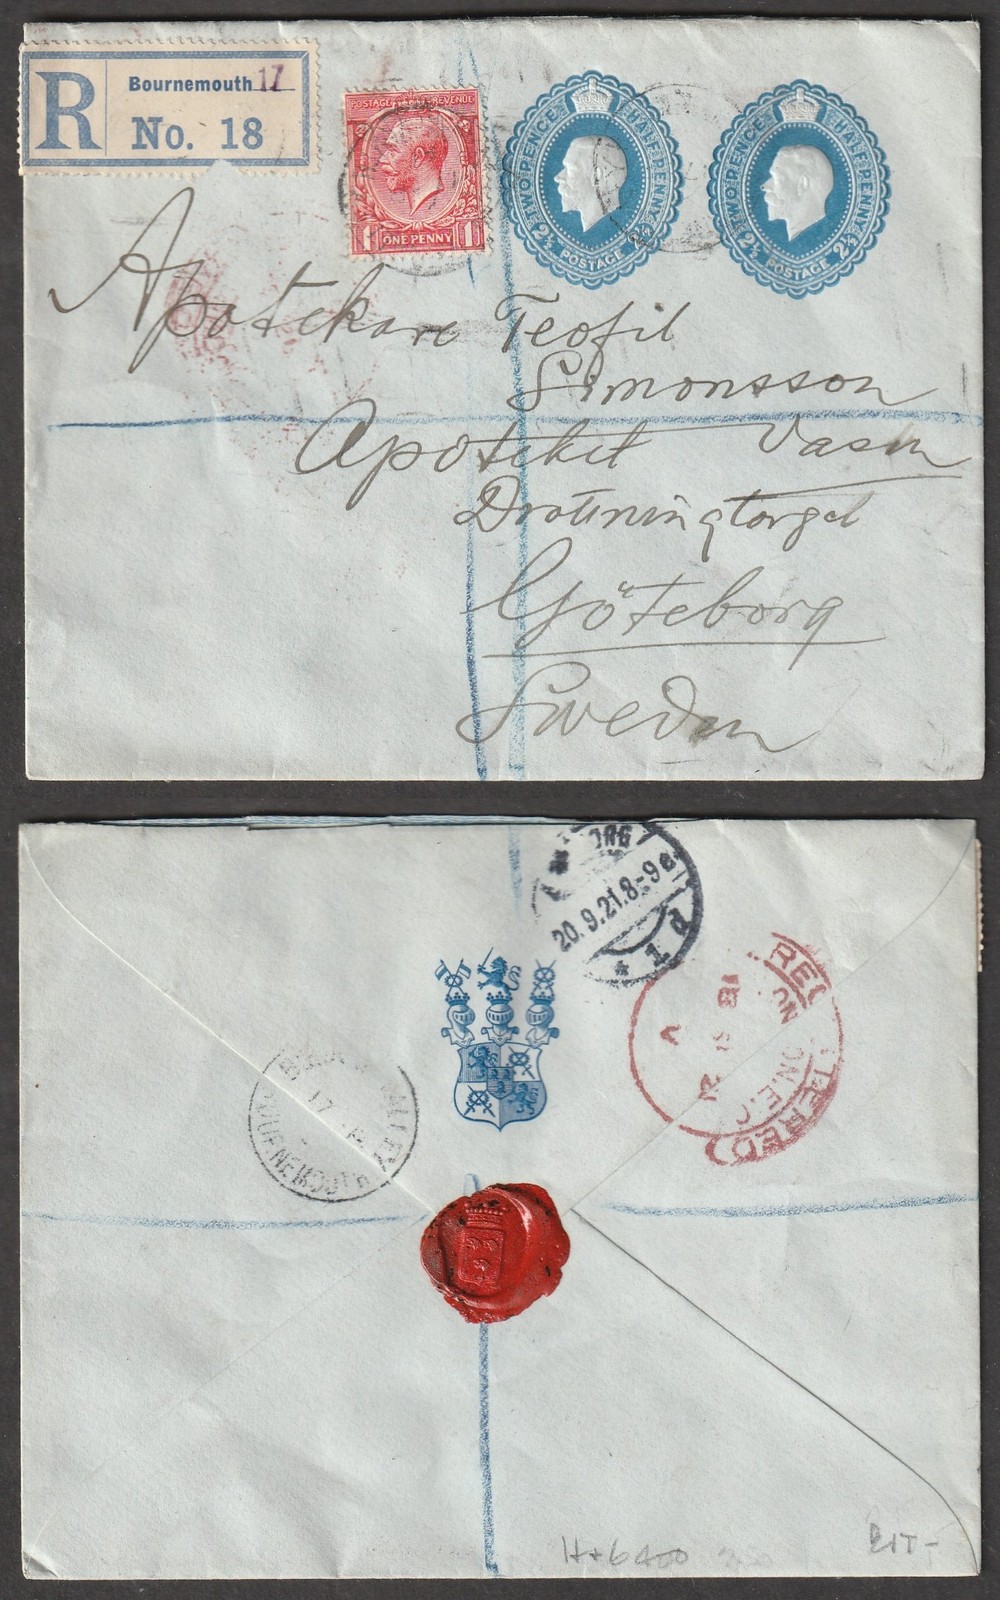 R
Bournemouth 17
No. 18
POSTAGE REVENUE
1 ONE PENNY 1
TWO PENCE HALFPENNY
2½ POSTAGE 2½
TWO PENCE HALFPENNY
2½ POSTAGE 2½
Apotekare Teofil
Simonsson
Apoteket Vasen
Drottningtorget
Göteborg
Sweden
20.9.21.8-9e
* 1 d
REGISTERED
BOURNEMOUTH
17
H+6400
£17-